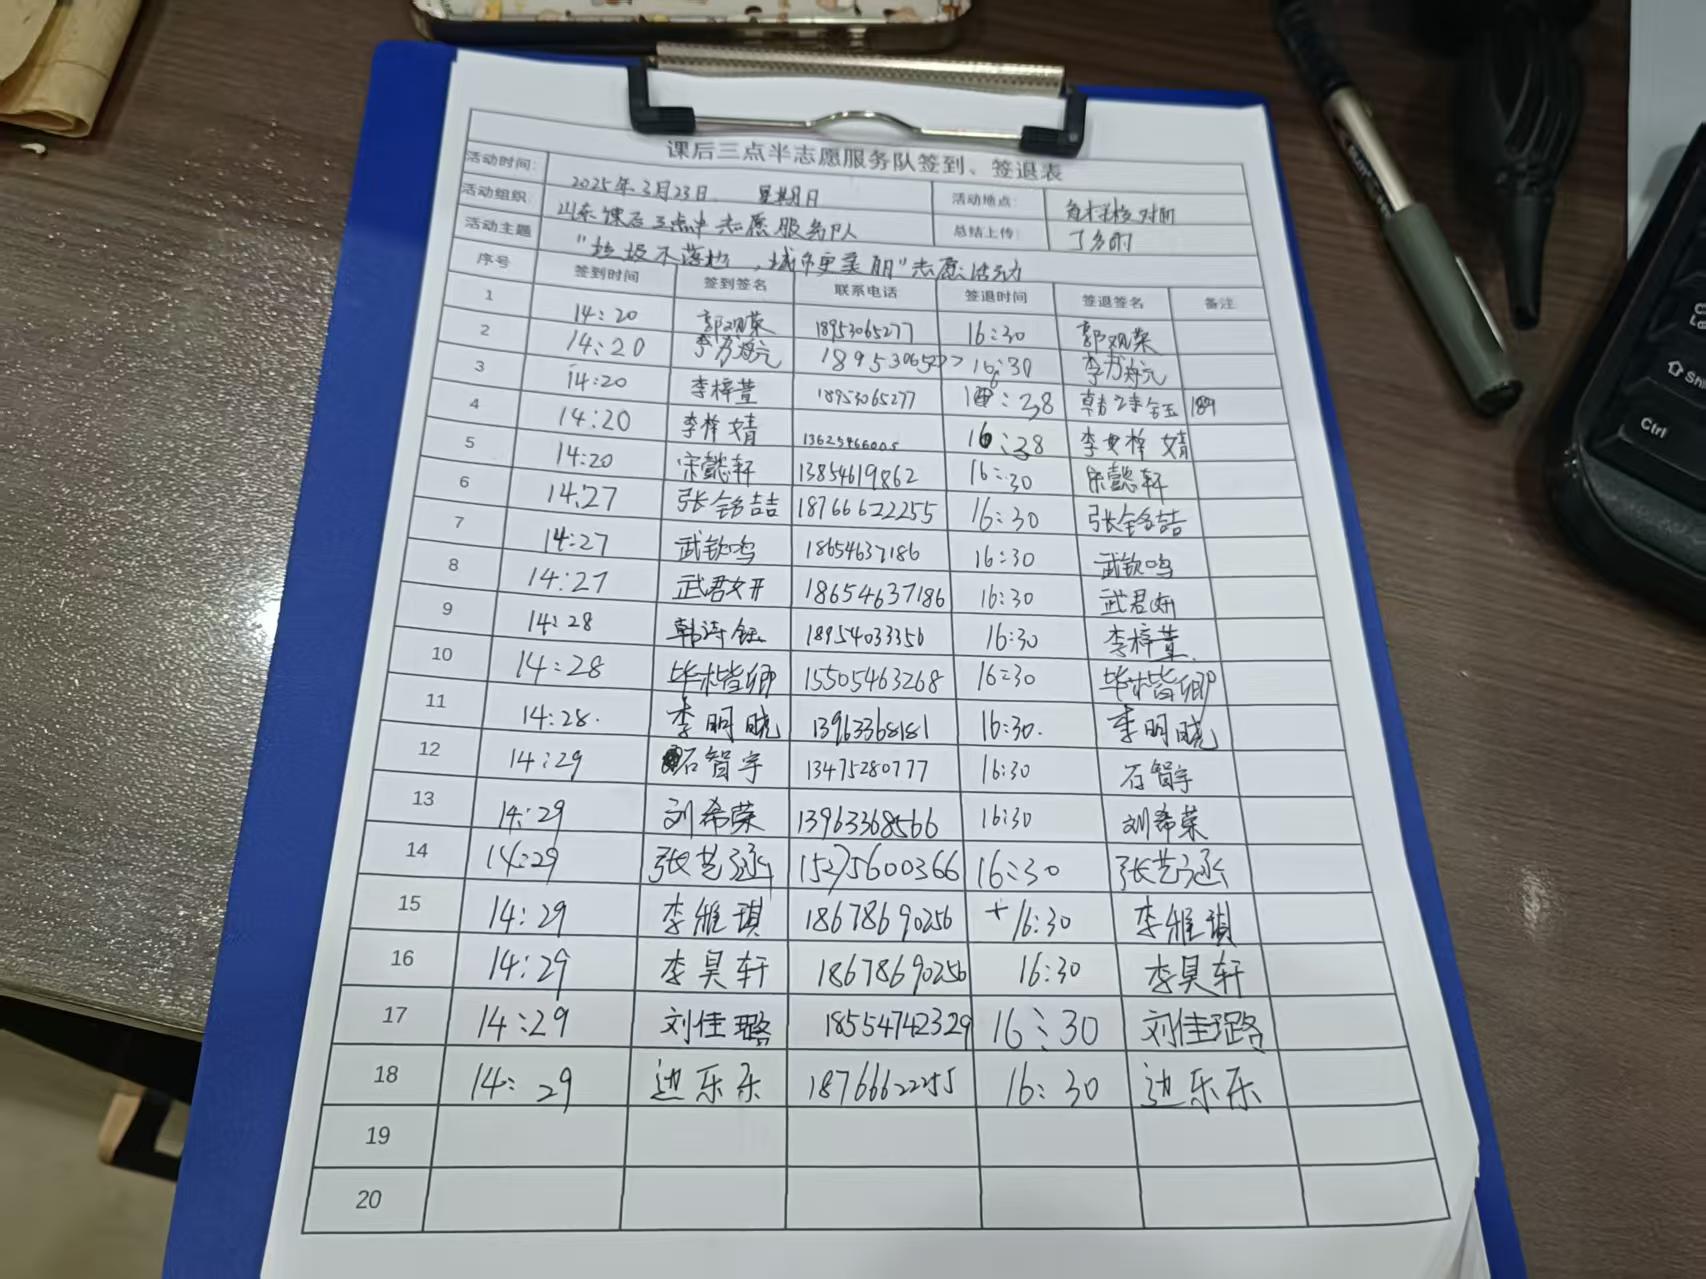 课后三点半志愿服务队签到、签退表
活动时间: 2025年3月23日. 星期日 活动地点: 对面
活动组织: 山东课后三点半志愿服务队 总结上传:
活动主题 "垃圾不落地,城市更美丽"志愿活动
序号 签到时间 签到签名 联系电话 签退时间 签退签名 备注
1 14:20 郭观荣 18953065277 16:30 郭观荣
2 14:20 18953065277 16:30
3 14:20 李梓萱 18953065277 :38 189
4 14:20 李梓婧 16:38 李梓婧
5 14:20 宋懿轩 13854619862 16:30 宋懿轩
6 14:27 张铭喆 18766622255 16:30 张铭喆
7 14:27 武钦鸣 18654637186 16:30 武钦鸣
8 14:27 武君妍 18654637186 16:30 武君妍
9 14:28 韩诗钰 18954033356 16:30 李梓萱.
10 14:28 毕楷卿 15505463268 16:30 毕楷卿
11 14:28. 李明晓 13963368181 16:30. 李明晓
12 14:29 石智宇 13475280777 16:30 石智宇
13 14:29 刘希荣 13963368566 16:30 刘希荣
14 14:29 张艺涵 15275600366 16:30 张艺涵
15 14:29 李雅琪 18678690256 +16:30 李雅琪
16 14:29 李昊轩 18678690256 16:30 李昊轩
17 14:29 刘佳璐 18554742329 16:30 刘佳璐
18 14:29 边乐乐 1876662255 16:30 边乐乐
19
20
Ctrl